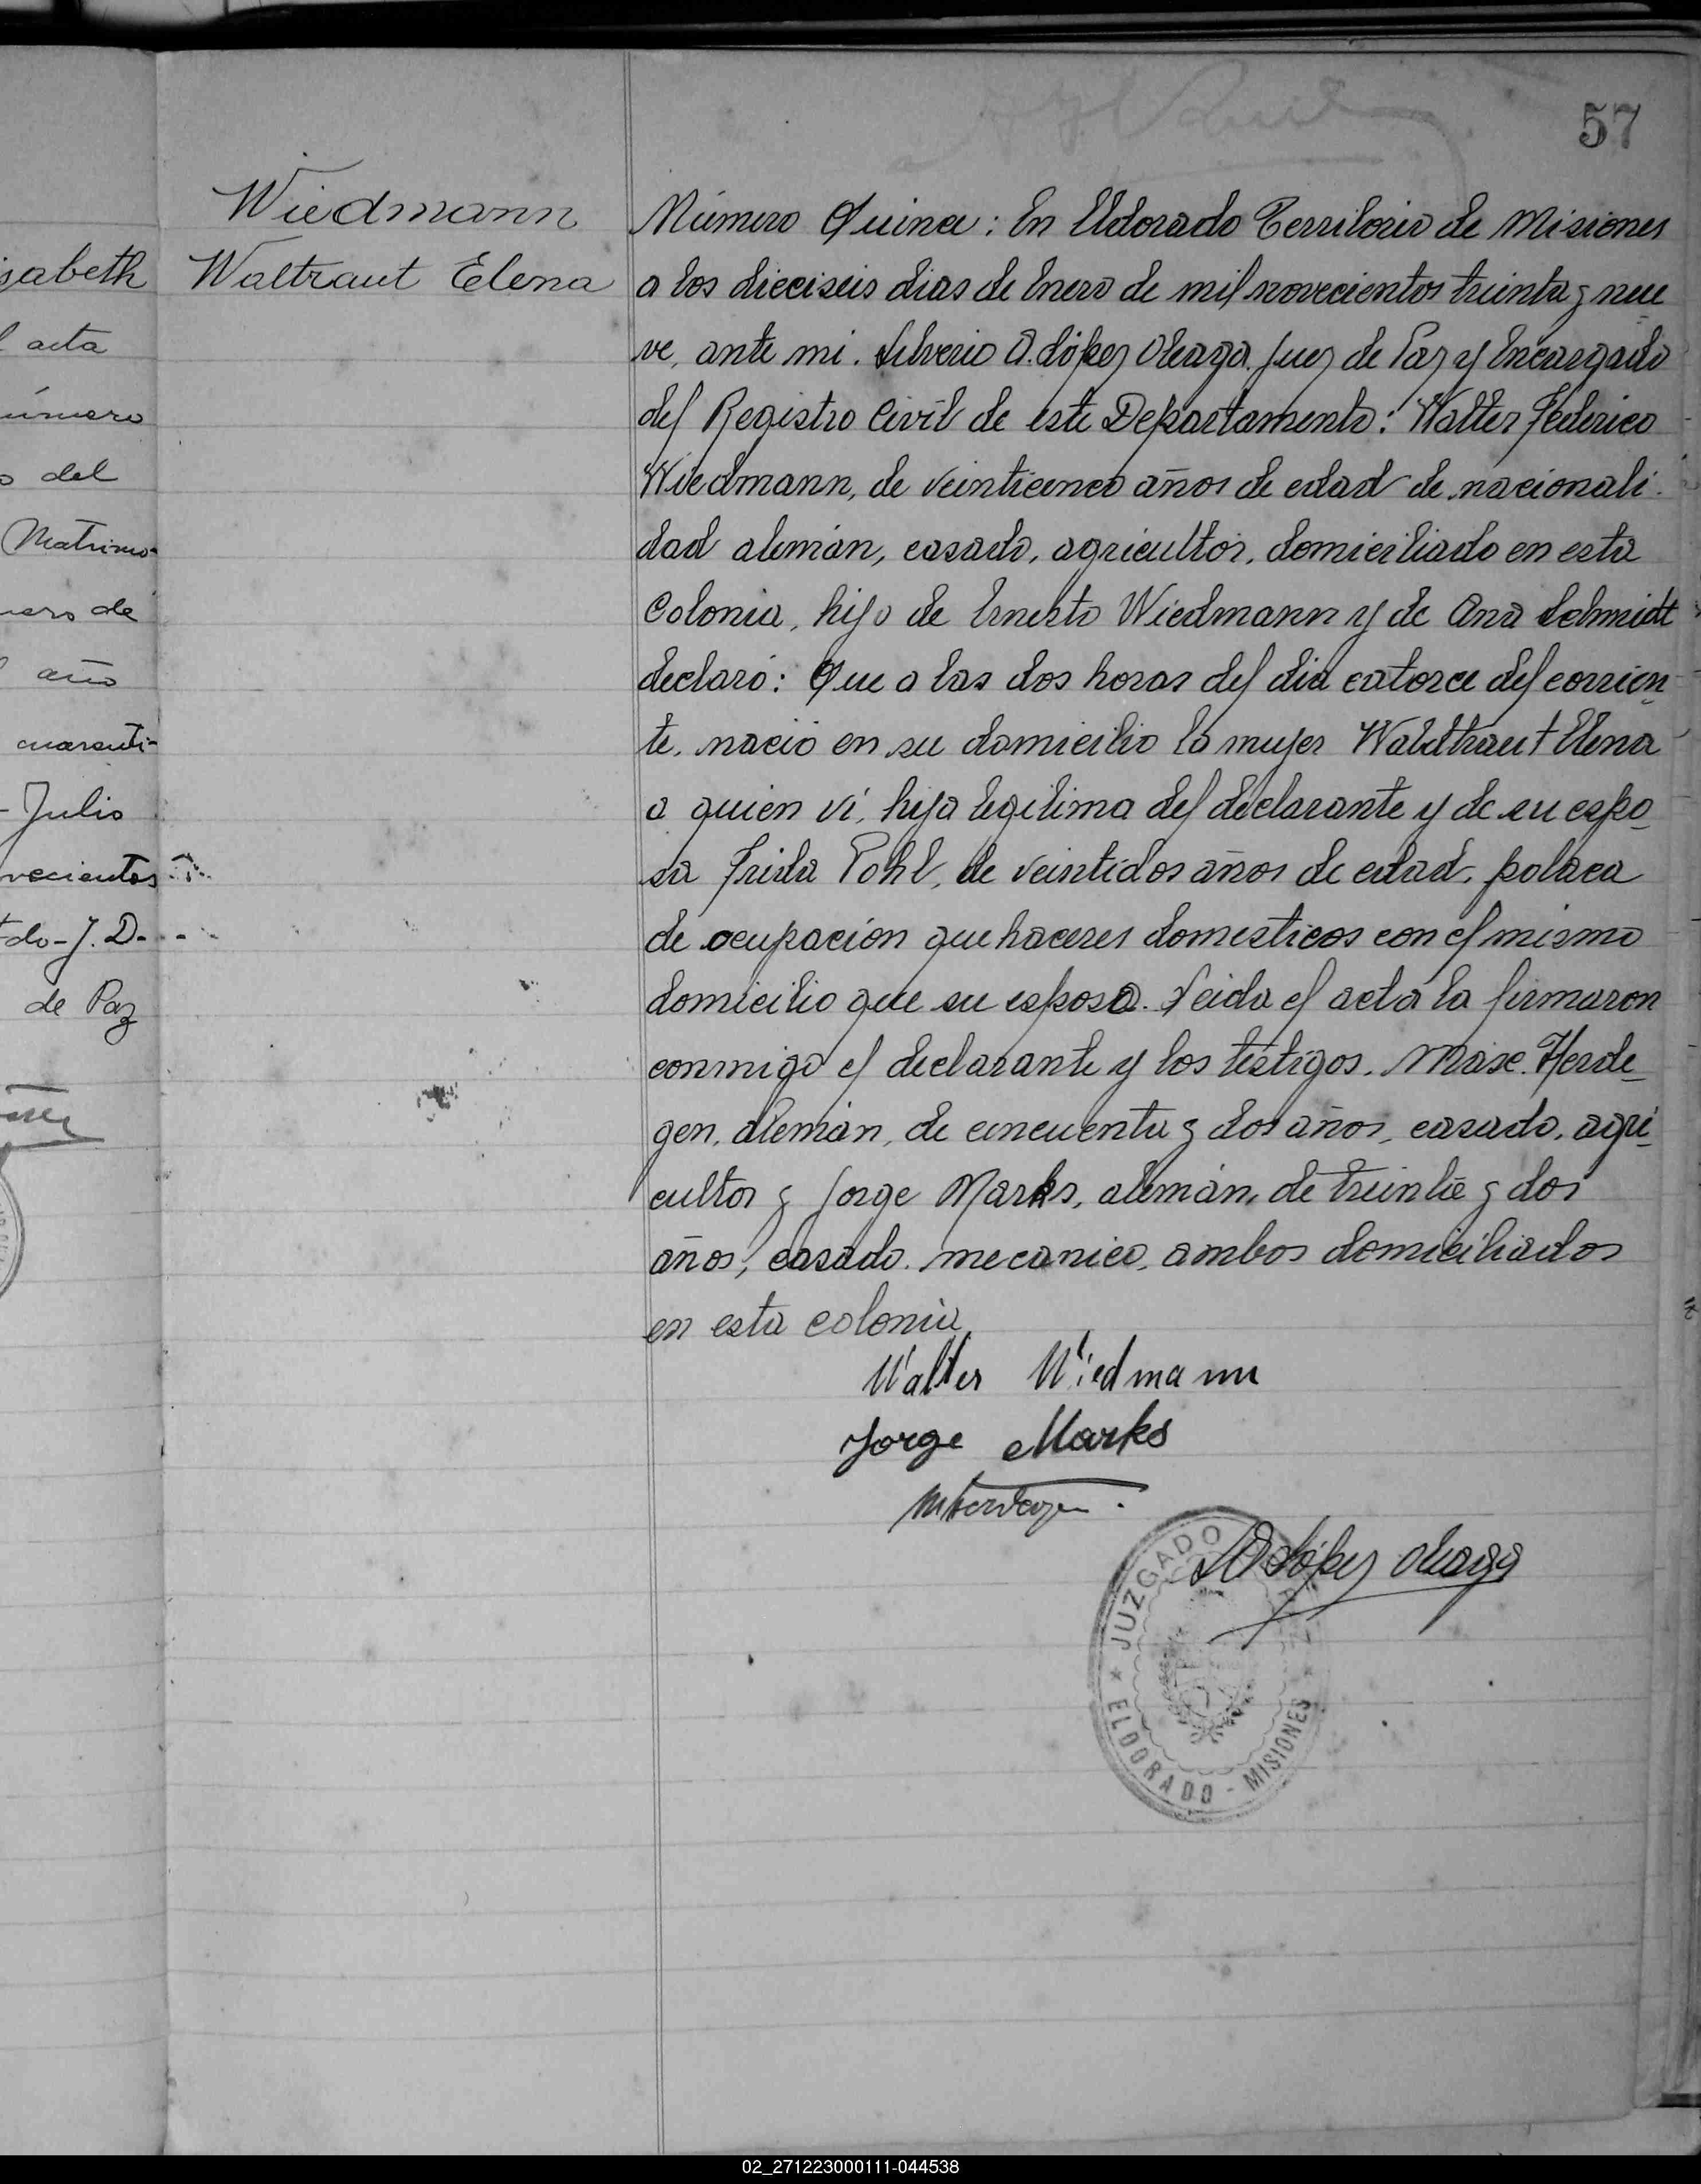 57
Wiedmann
Waltraut Elena
sabeth
l acta
úmero
o del
Matrimo-
nero de
l año
cuarenti-
- Julio
vecientos
do - J. D.
de Paz
Número Quince: En Eldorado Territorio de Misiones
a los dieciseis dias de Enero de mil novecientos treinta y nue
ve, ante mi. Silverio A. López Oleaga. Juez de Paz y Encargado
del Registro Civil de este Departamento: Walter Federico
Wiedmann, de veinticinco años de edad de nacionali-
dad alemán, casado, agricultor, domiciliado en esta
Colonia, hijo de Ernesto Wiedmann y de Ana Schmidt
declaró: Que a las dos horas del dia catorce del corrien
te, nació en su domicilio la mujer Waldtraut Elena
a quien ví, hija legitima del declarante y de su espo
sa Frida Pohl, de veintidos años de edad, polaca
de ocupación quehaceres domesticos con el mismo
domicilio que su esposo. Leida el acta la firmaron
conmigo el declarante y los testigos. Max. Herde
gen, alemán, de cincuenta y dos años, casado, agri
cultor y Jorge Marks, alemán, de treinta y dos
años, casado, mecanico, ambos domiciliados
en esta colonia
Walter Wiedmann
Jorge Marks
MHerdegen.
SALópez Oleaga
JUZGADO
ELDORADO - MISIONES
02_271223000111-044538